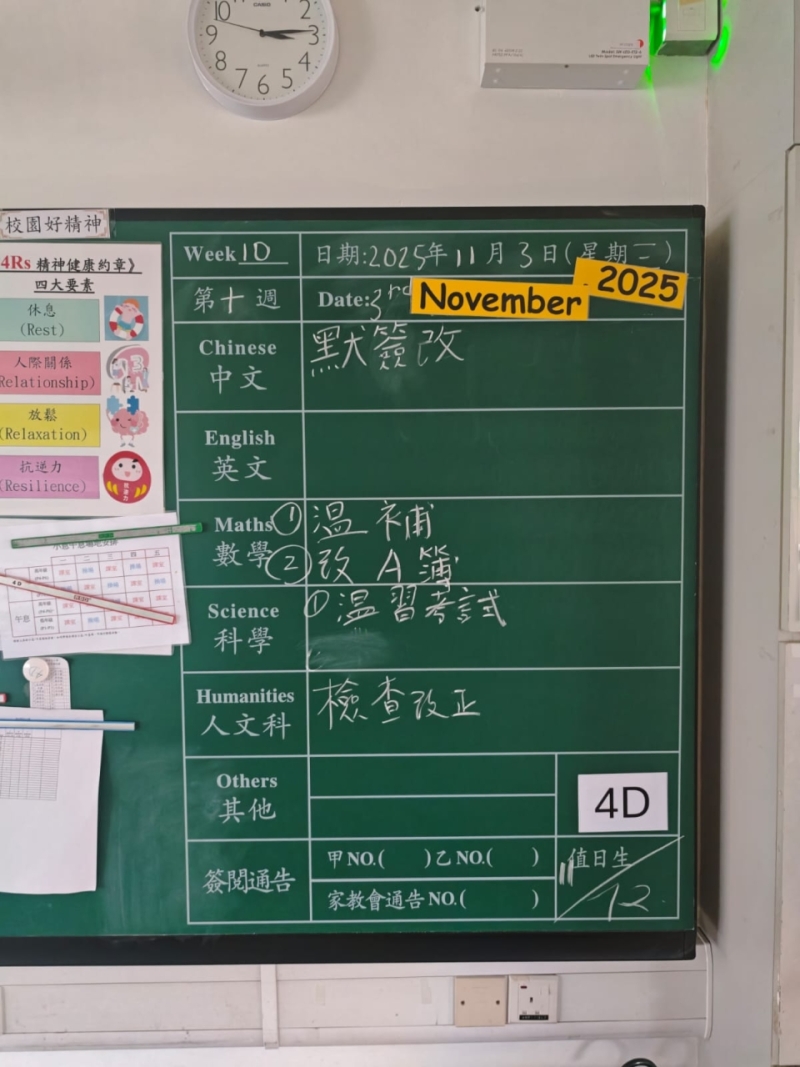 10
2
9
3
8
4
7
6
5
CASIO
校園好精神
4Rs 精神健康約章》
四大要素
休息
(Rest)
人際關係
Relationship)
放鬆
(Relaxation)
抗逆力
(Resilience)
Week 10
日期:2025年11月3日(星期一)
第十週
Date:3rd
November
2025
Chinese
中文
默簽改
English
英文
Maths
數學
① 溫補
② 改A簿
Science
科學
① 溫習考試
Humanities
人文科
檢查改正
Others
其他
4D
簽閱通告
甲NO.( )乙NO.( )
家教會通告NO.( )
值日生
11/12